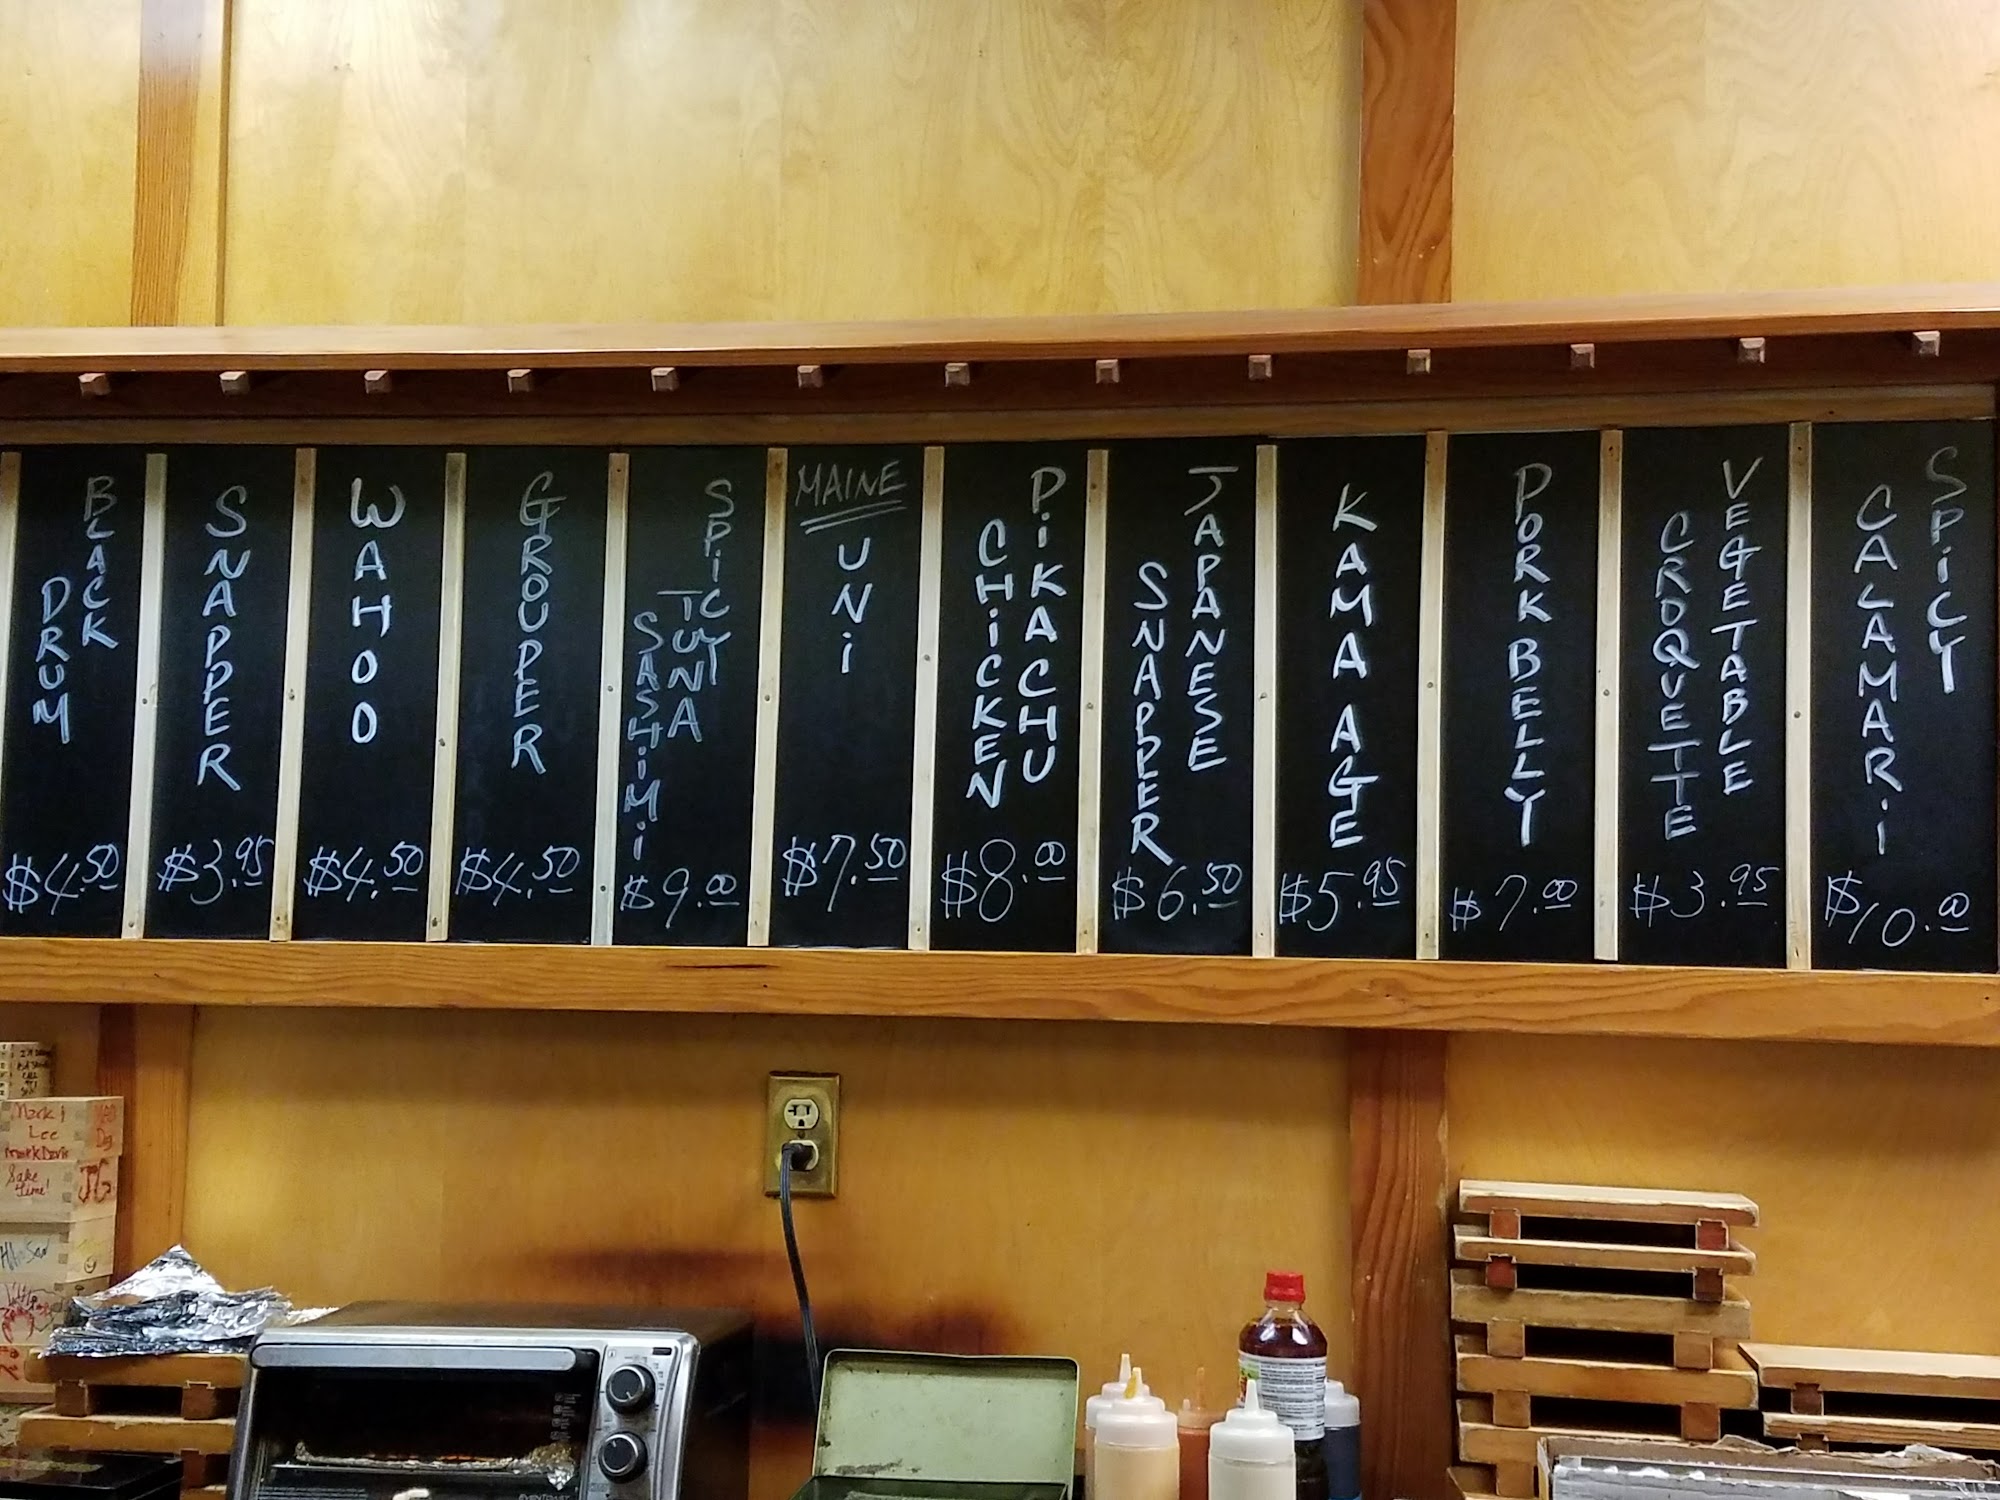 BLACK DRUM
$4.50
SNAPPER
$3.95
WAHOO
$4.50
GROUPER
$4.50
SPiCY TUNA SASHiMi
$9.00
MAINE
UNi
$7.50
PiKACHU CHiCKEN
$8.00
JAPANESE SNAPPER
$6.50
KAMA AGE
$5.95
PORK BELLY
$7.00
VEGETABLE CROQUETTE
$3.95
SPiCY CALAMARi
$10.00
Mark i
Lee
Mark Davis
Sake
time!
JG